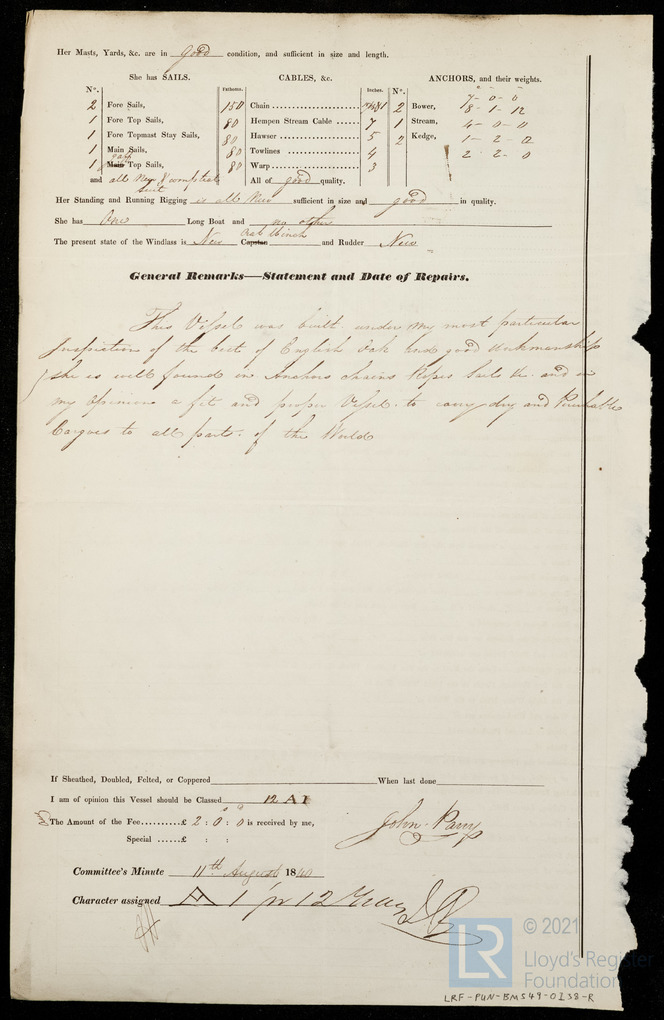 Her Masts, Yards, &c. are in good condition, and sufficient in size and length.
She has SAILS. CABLES, &c. ANCHORS, and their weights.
Nº. Fathoms. Inches. Nº.
2 Fore Sails, 150 Chain 2 Bower, 7 - 0 - 0
8 - 1 - 12
1 Fore Top Sails, 80 Hempen Stream Cable 7 1 Stream, 4 - 0 - 0
1 Fore Topmast Stay Sails, 80 Hawser 5 2 Kedge, 1 - 2 - 0
1 Main Sails, 80 Towlines 4 2 - 2 - 0
gaff
1 Main Top Sails, 80 Warp 3
and all New & complete All of good quality.
suit
Her Standing and Running Rigging is all New sufficient in size and good in quality.
She has One Long Boat and no other
The present state of the Windlass is New Capstan Crab Winch and Rudder New
General Remarks—Statement and Date of Repairs.
This Vessel was built under my most particular
Inspection of the best of English Oak and good Workmanship
she is well found in Anchors Chains Ropes Sails &c. and in
my Opinion a fit and proper Vessel to carry dry and Perishable
Cargoes to all parts of the World
If Sheathed, Doubled, Felted, or Coppered When last done
I am of opinion this Vessel should be Classed 12 A 1
The Amount of the Fee..........£ 2 : 0 : 0 is received by me,
John Parry
Special ......£ : :
Committee's Minute 11th August 1840
Character assigned A 1 for 12 Years
© 2021
LR
Lloyd's Register
Foundation
LRF-PUN-BMS49-0138-R